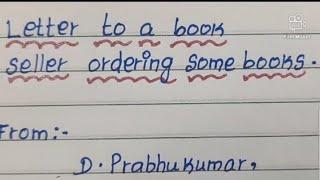 Letter to a book
seller ordering some books.
From:-
D. Prabhukumar,